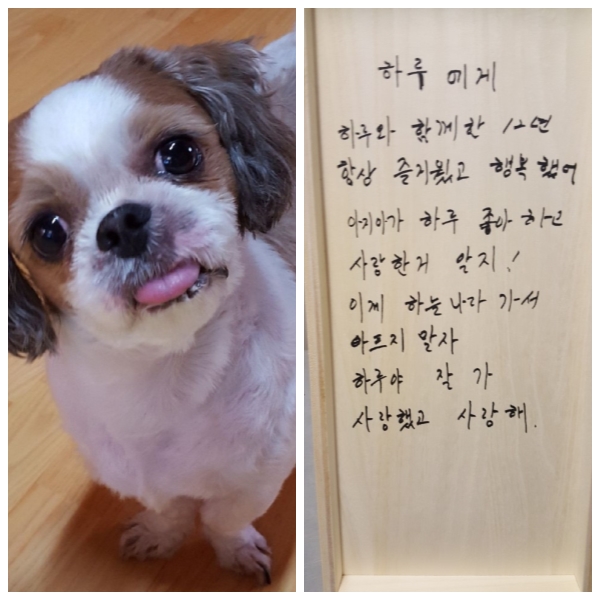 하루 에게
하루와 함께한 12년
항상 즐거웠고 행복했어
아지아가 하루 좋아 하고
사랑한거 알지!
이제 하늘나라 가서
아프지 말자
하루야 잘 가
사랑했고 사랑해.